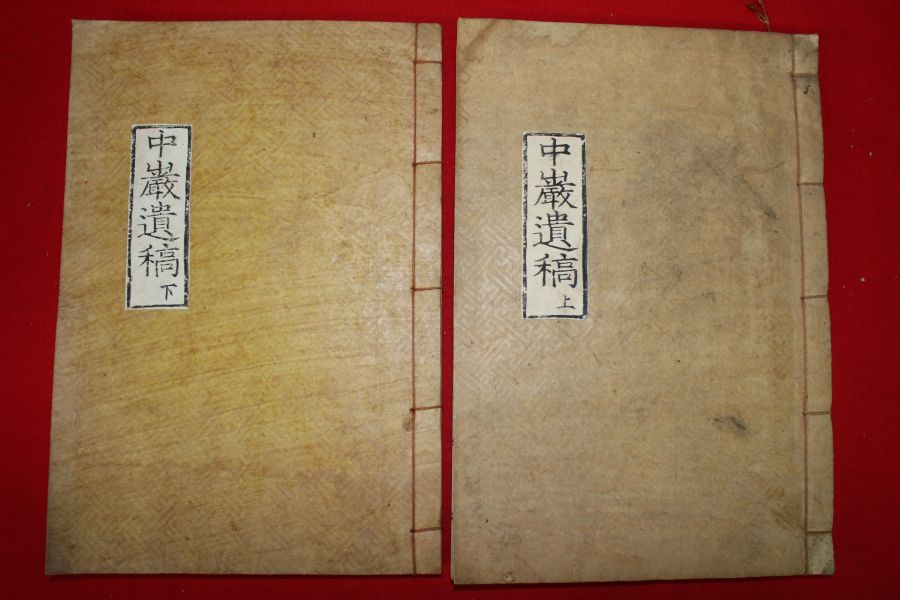 中巖遺稿 上
中巖遺稿 下